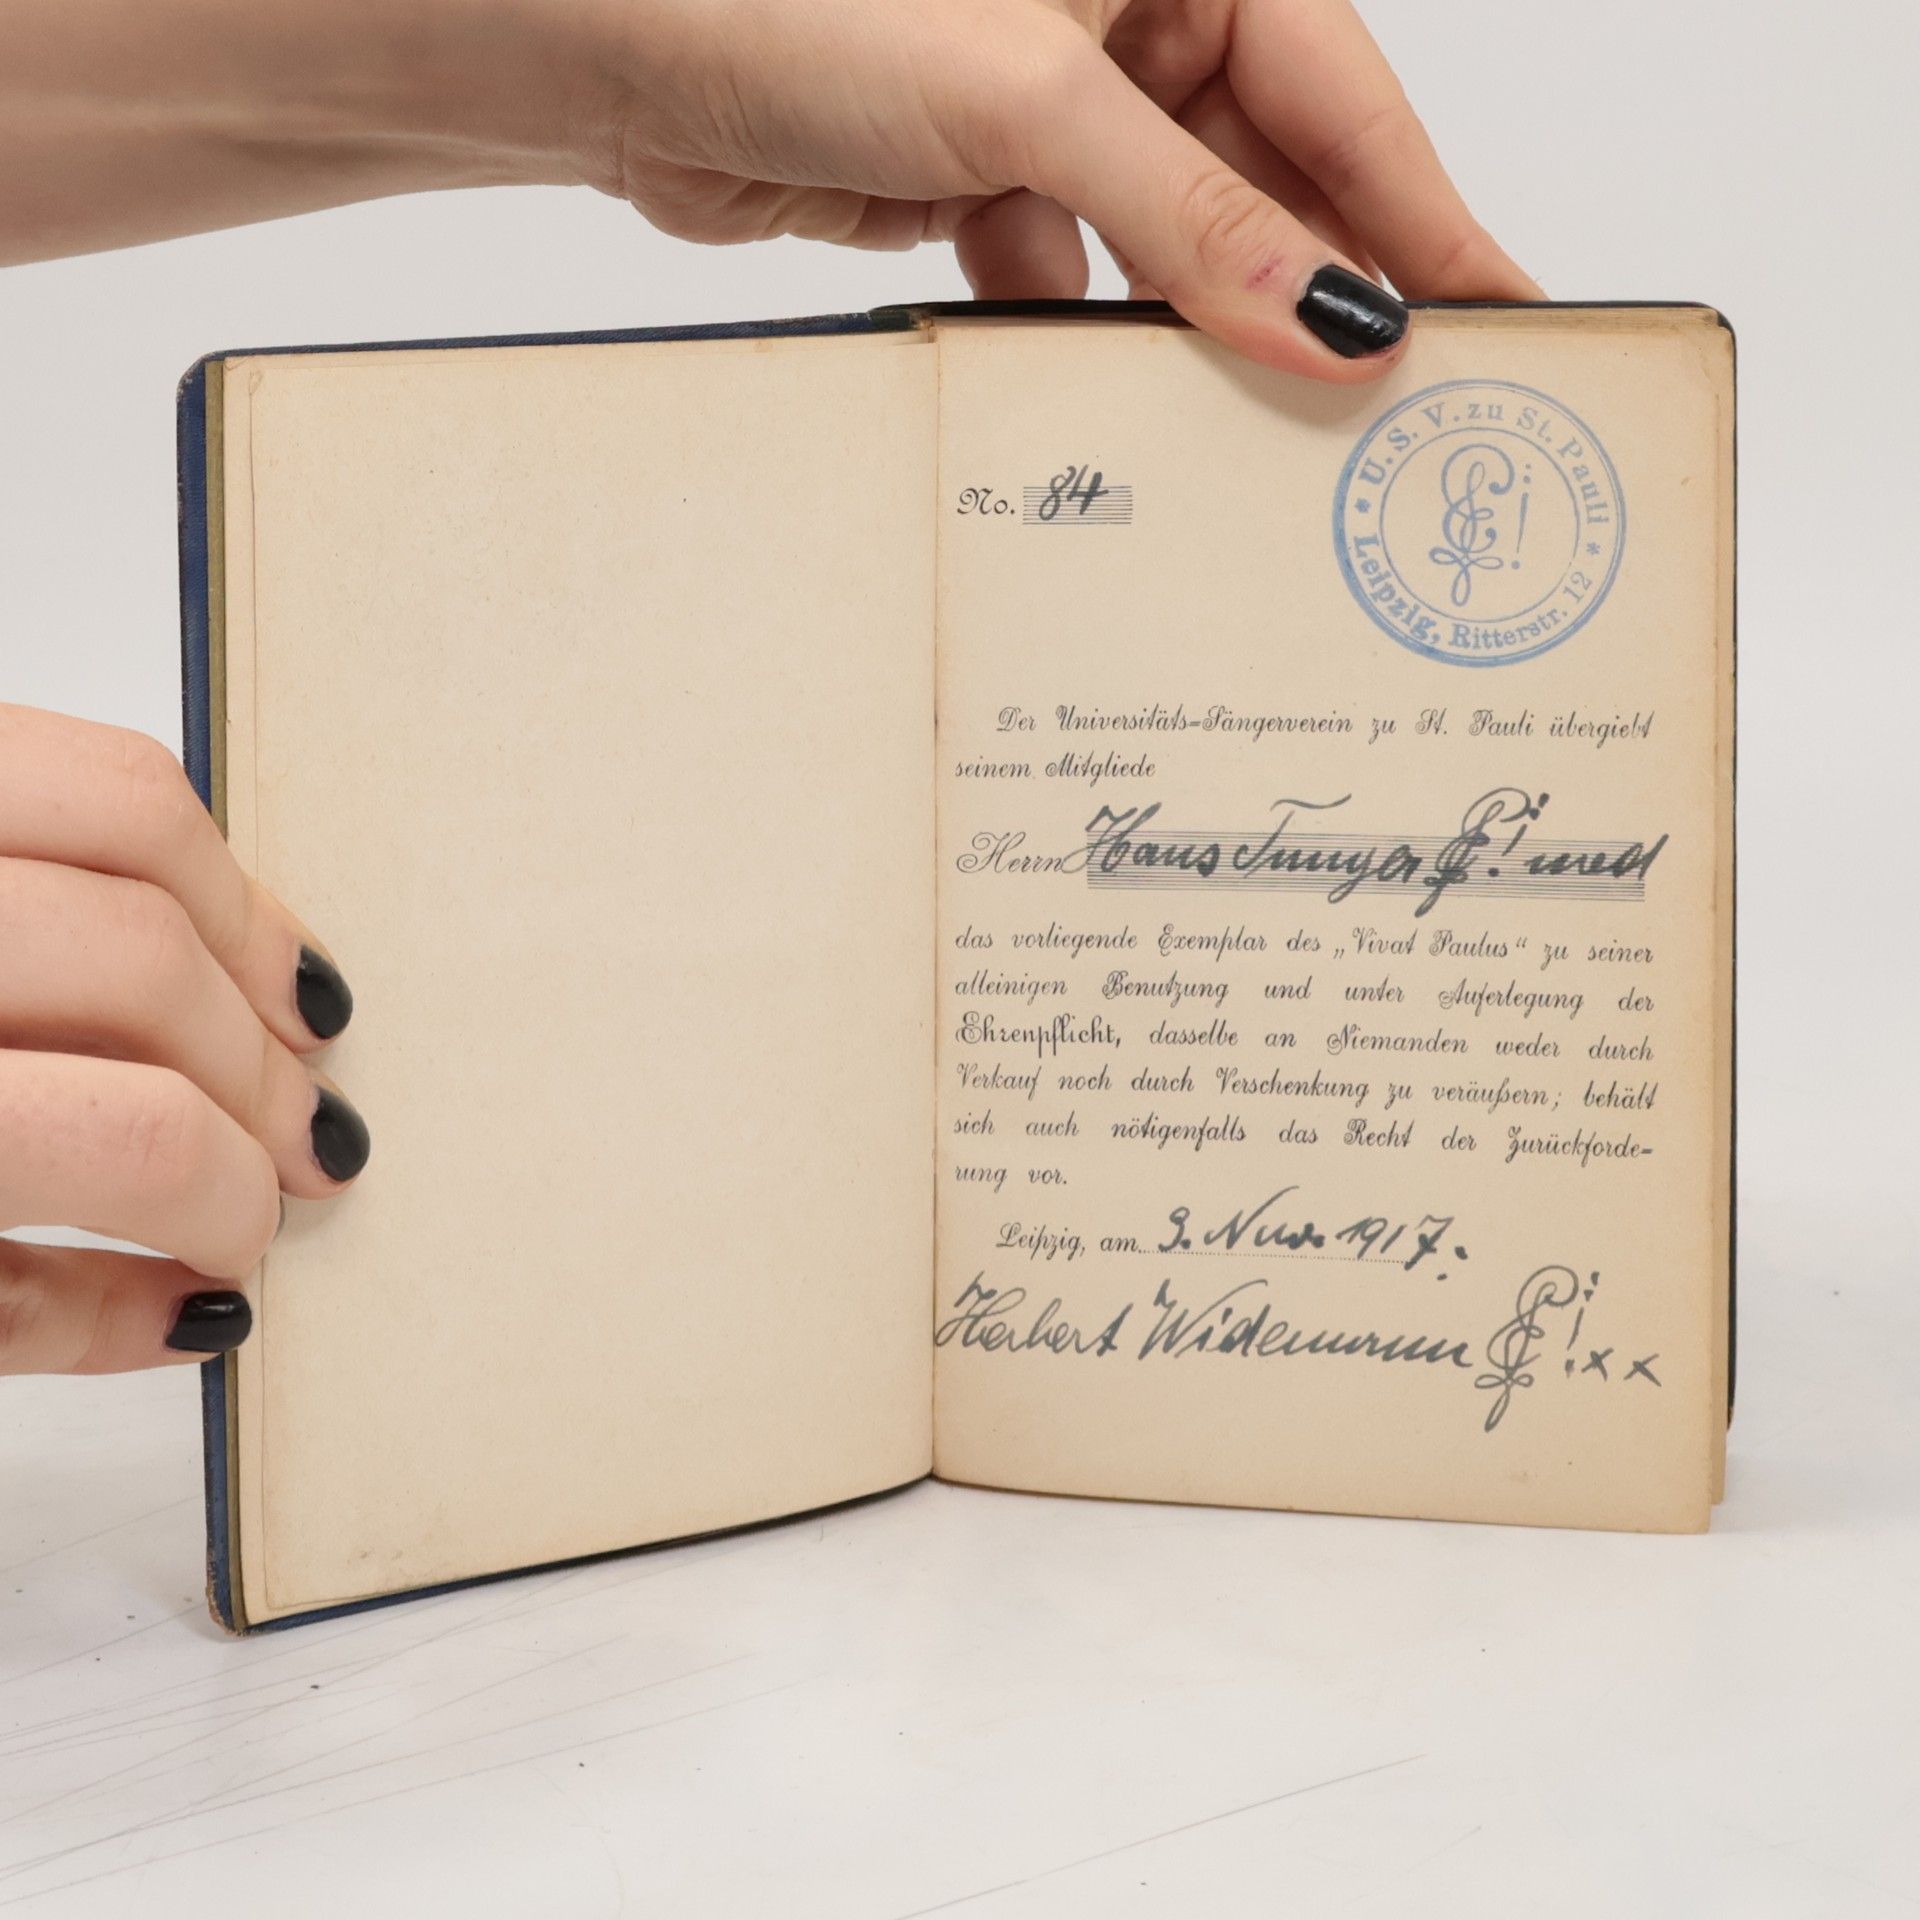 No. 84
* U. S. V. zu St. Pauli *
Leipzig, Ritterstr. 12
Der Universitäts=Sängerverein zu St. Pauli übergiebt
seinem Mitgliede
Herrn Hans med
das vorliegende Exemplar des „Vivat Paulus“ zu seiner
alleinigen Benutzung und unter Auferlegung der
Ehrenpflicht, dasselbe an Niemanden weder durch
Verkauf noch durch Verschenkung zu veräußern; behält
sich auch nötigenfalls das Recht der Zurückforde=
rung vor.
Leipzig, am 9. Nov. 1917.
Herbert Widemann xx